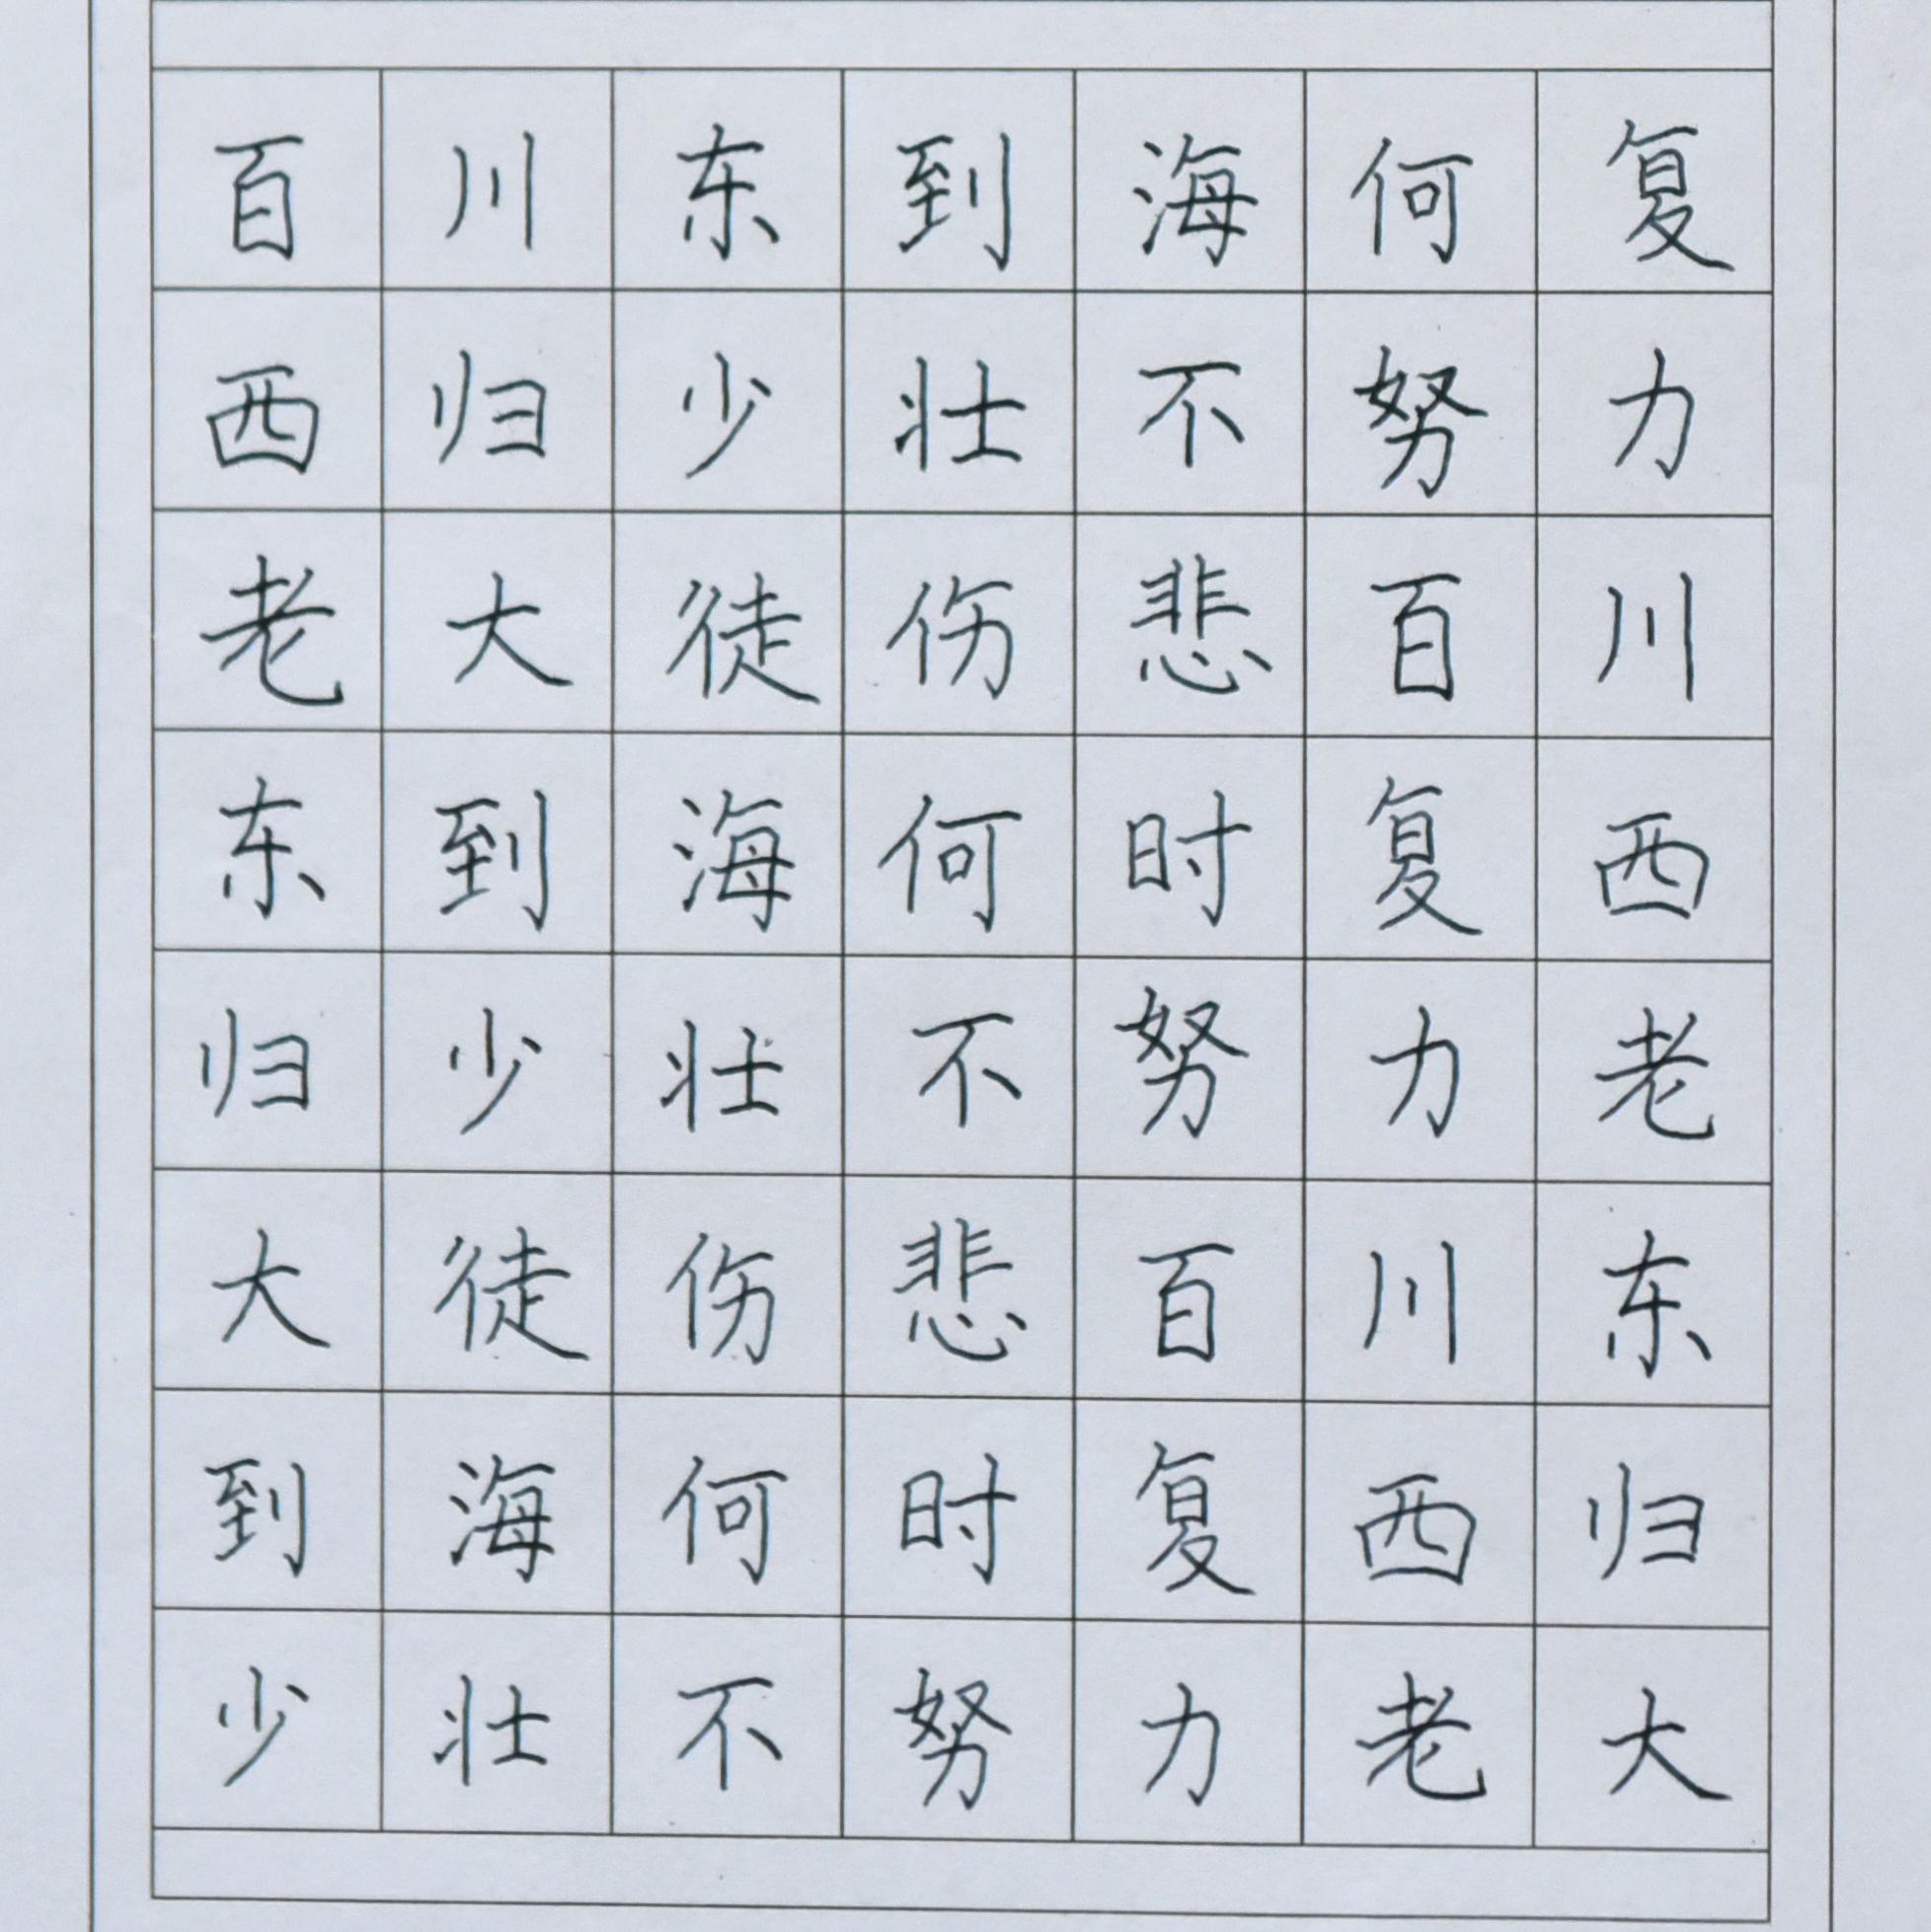 百川东到海何复
西归少壮不努力
老大徒伤悲百川
东到海何时复西
归少壮不努力老
大徒伤悲百川东
到海何时复西归
少壮不努力老大